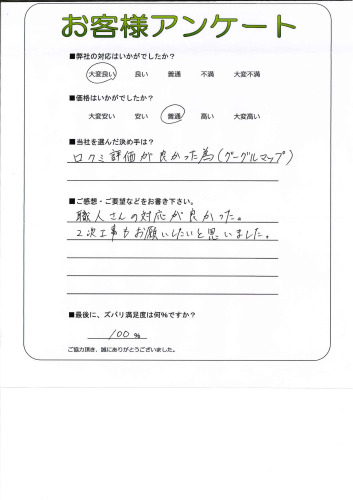 お客様アンケート
■弊社の対応はいかがでしたか？
大変良い 良い 普通 不満 大変不満
■価格はいかがでしたか？
大変安い 安い 普通 高い 大変高い
■当社を選んだ決め手は？
口クミ評価が良かった為(グーグルマップ)
■ご感想・ご要望などをお書き下さい。
職人さんの対応が良かった。
2次工事もお願いしたいと思いました。
■最後に、ズバリ満足度は何%ですか？
100 %
ご協力頂き、誠にありがとうございました。